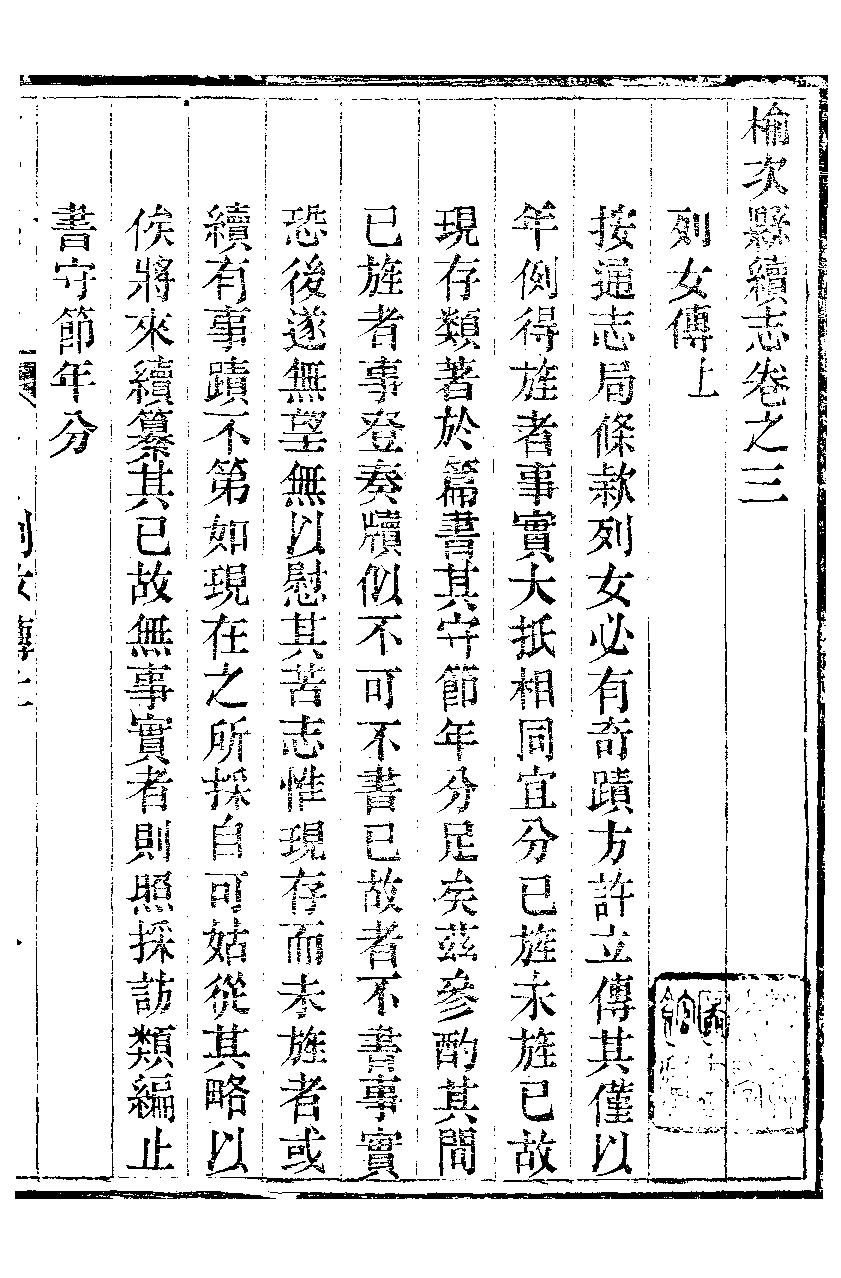 榆次縣續志卷之三
列女傳上
按通志局條款列女必有奇蹟方許立傳其僅以
年例得旌者事實大抵相同宜分已旌未旌已故
現存類著於篇書其守節年分足矣茲參酌其間
已旌者事登奏牘似不可不書已故者不書事實
恐後遂無望無以慰其苦志惟現存而未旌者或
續有事蹟不第如現在之所採自可姑從其略以
俟將來續纂其已故無事實者則照採訪類編止
書守節年分
列女傳上